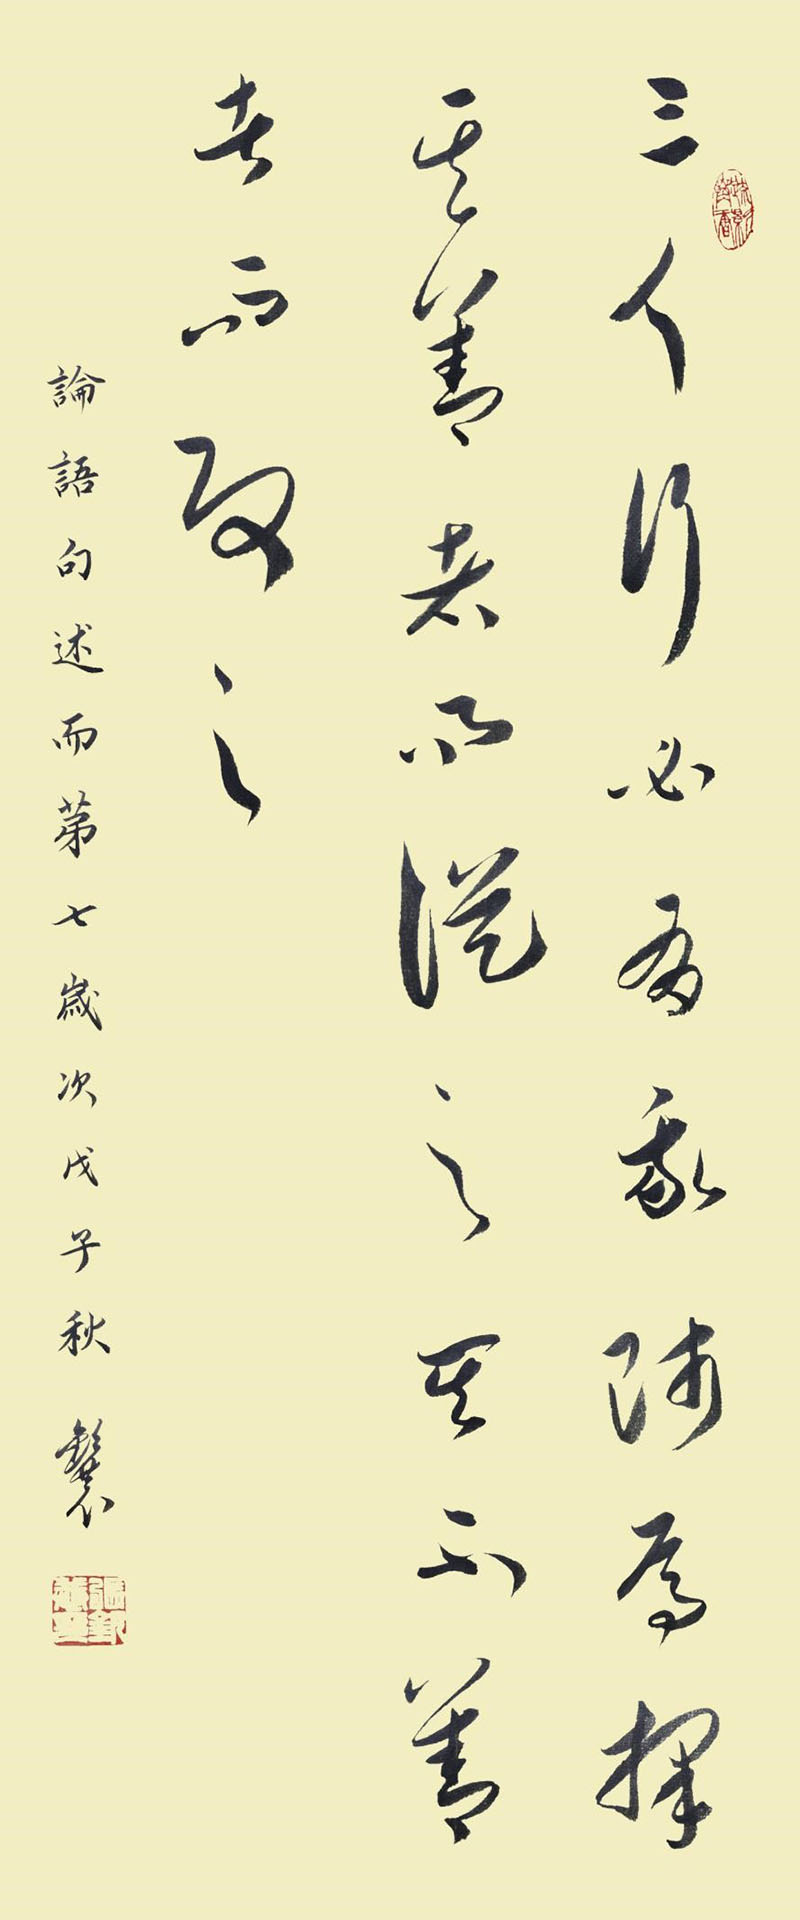 三人行必有我師焉擇
其善者而從之其不善
者而改之
論語句述而第七歲次戊子秋